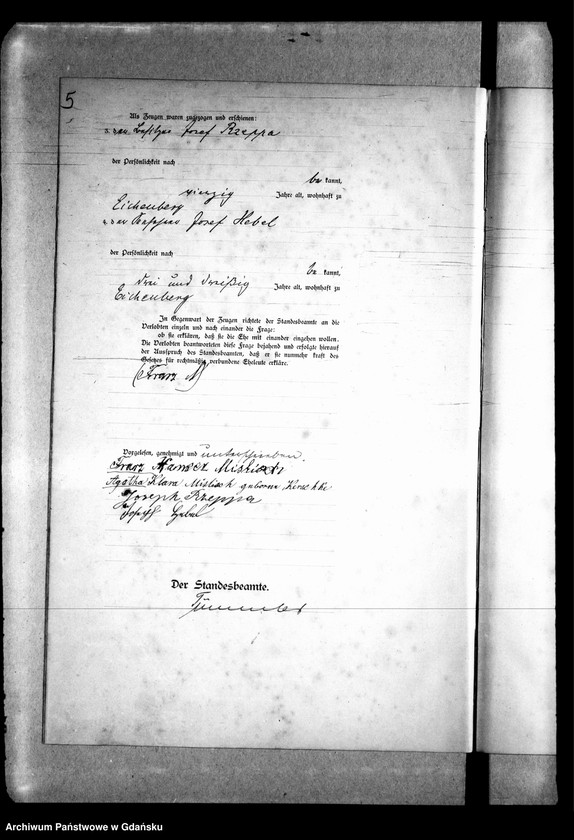 5
Als Zeugen waren zugezogen und erschienen:
3. der Josef Rzeppa
der Persönlichkeit nach
be kannt,
vierzig Jahre alt, wohnhaft zu
Eichenberg
4. der Josef Hebel
der Persönlichkeit nach
be kannt,
drei und dreißig Jahre alt, wohnhaft zu
Eichenberg
In Gegenwart der Zeugen richtete der Standesbeamte an die
Verlobten einzeln und nach einander die Frage:
ob sie erklären, daß sie die Ehe mit einander eingehen wollen.
Die Verlobten beantworteten diese Frage bejahend und erfolgte hierauf
der Ausspruch des Standesbeamten, daß er sie nunmehr kraft des
Gesetzes für rechtmäßig verbundene Eheleute erkläre.
(Franz
Vorgelesen, genehmigt und unterschrieben.
Franz
Agatha Klara geborne
Joseph Rzeppa
Joseph Hebel
Der Standesbeamte.
Archiwum Państwowe w Gdańsku